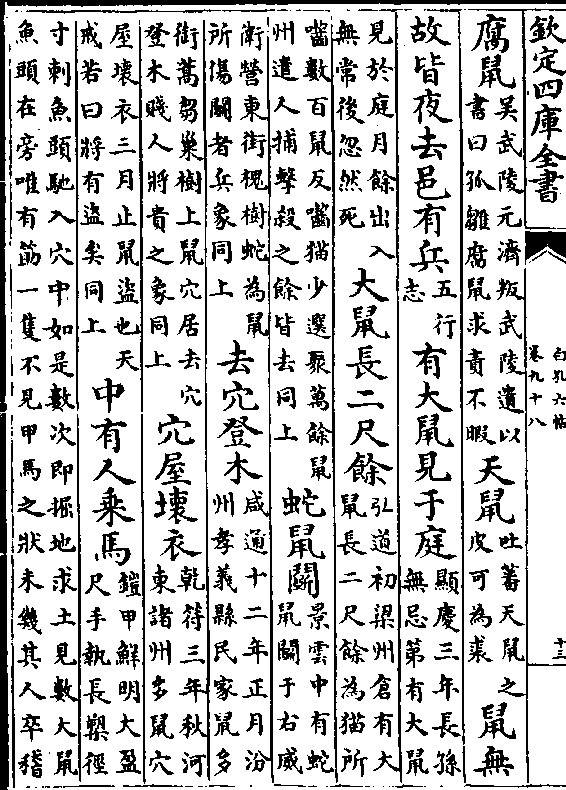 欽定四庫全書
白孔六帖
卷九十八
十三
腐鼠
吳武陵元濟叛武陵遺以
書曰孤雛腐鼠求責不暇
天鼠
吐蕃天鼠之
皮可為裘
鼠無
故皆夜去邑有兵
五行
志
有大鼠見于庭
顯慶三年長孫
無忌第有大鼠
見於庭月餘出入
無常後忽然死
大鼠長二尺餘
弘道初梁州倉有大
鼠長二尺餘為猫所
嚙數百鼠反嚙猫少選聚萬餘鼠
州遣人捕擊殺之餘皆去同上
蛇鼠鬭
景雲中有蛇
鼠鬭于右威
衛營東街槐樹蛇為鼠
所傷鬭者兵象同上
去穴登木
咸通十二年正月汾
州孝義縣民家鼠多
銜蒿芻巢樹上鼠穴居去穴
登木賤人將貴之象同上
穴屋壞衣
乾符三年秋河
東諸州多鼠穴
屋壞衣三月止鼠盜也天
戒若曰將有盜矣同上
中有人乘馬
鎧甲鮮明大盈
尺手執長槊徑
寸刺魚頭馳入穴中如是數次即掘地求土見數大鼠
魚頭在旁唯有筯一隻不見甲馬之狀未幾其人卒稽